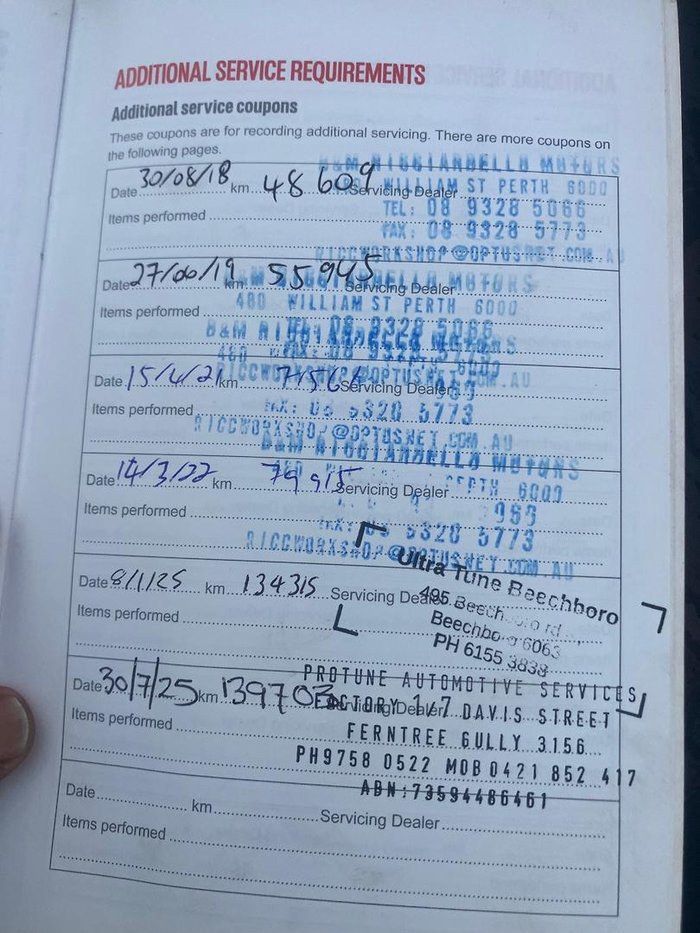 ADDITIONAL SERVICE REQUIREMENTS
Additional service coupons
These coupons are for recording additional servicing. There are more coupons on
the following pages.
Date 30/08/18 km 48609 Servicing Dealer
B&M RICCIARDELLO MOTORS
WILLIAM ST PERTH 6000
Items performed
TEL: 08 9328 5066
FAX: 08 9328 5773
RICCWORKSHOP@OPTUSNET.COM.AU
Date 27/06/19 km 55945 Servicing Dealer
B&M RICCIARDELLO MOTORS
Items performed
460 WILLIAM ST PERTH 6000
TEL 08 9328 5066
B&M RICCIARDELLO MOTORS
460
FAX: 08 9328
6000
RICCWORKSHOP@OPTUSNET.COM.AU
Date 15/4/21 km Servicing Dealer
Items performed
FAX: 08 9328 5773
RICCWORKSHOP@OPTUSNET.COM.AU
B&M RICCIARDELLO MOTORS
Date 14/3/22 km 79915 Servicing Dealer
PERTH 6000
Items performed
FAX: 08 9328 5773
RICCWORKSHOP@OPTUSNET.COM.AU
Ultra Tune Beechboro
Date 8/1/25 km 134315 Servicing Dealer
495 Beechboro rd
Items performed
Beechboro 6063
PH 6155 3838
PROTUNE AUTOMOTIVE SERVICES
Date 30/7/25 km 139703 Servicing Dealer
FACTORY 1/7 DAVIS STREET
Items performed
FERNTREE GULLY 3156
PH9758 0522 MOB 0421 852 417
ABN:73594486461
Date km Servicing Dealer
Items performed